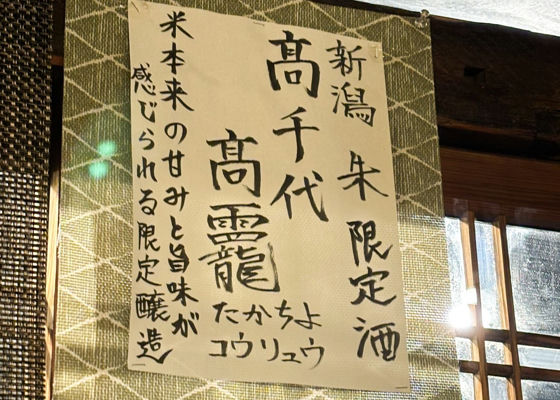 新潟 朱 限定酒
髙千代
髙龗
たかちよ
コウリュウ
米本来の甘みと旨味が
感じられる限定醸造